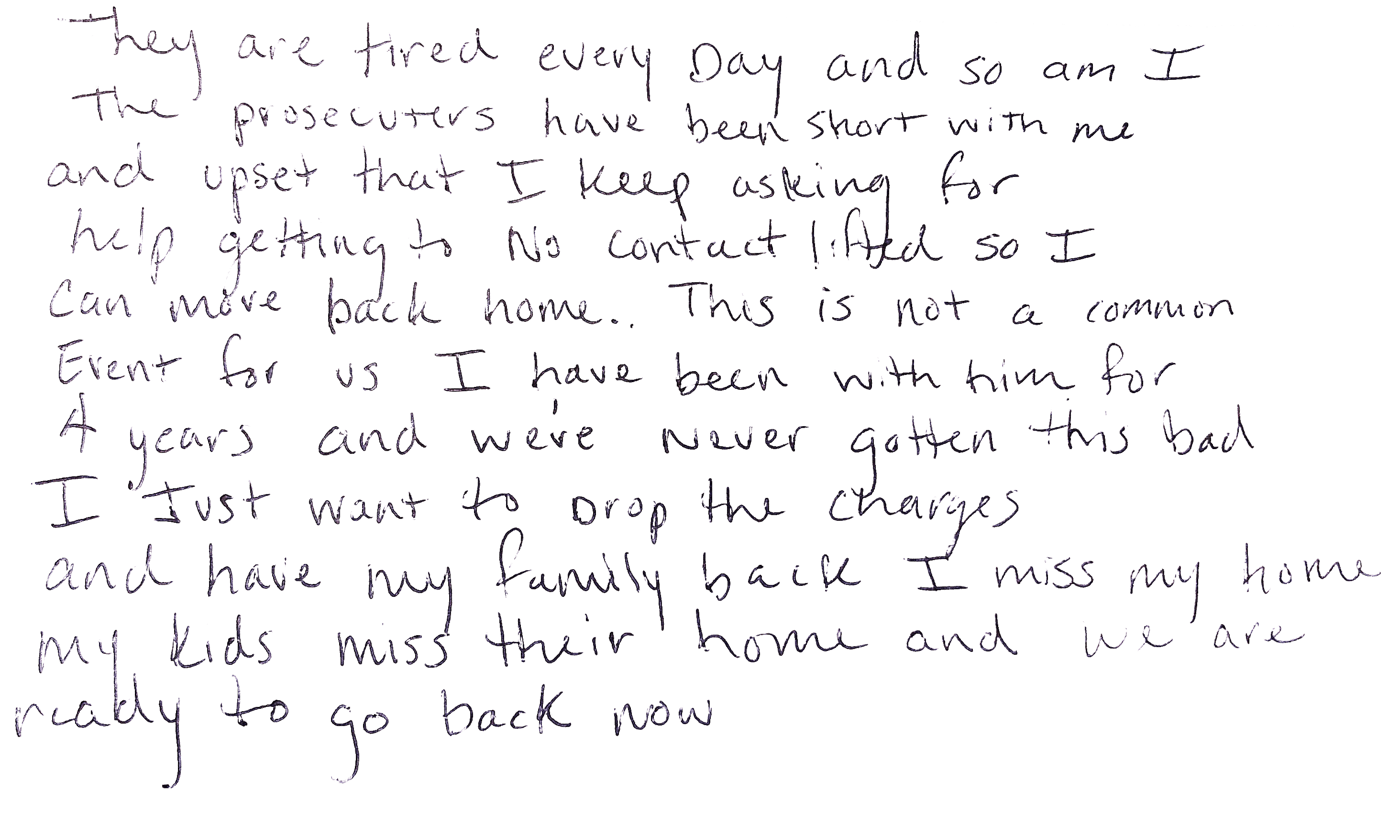 They are tired every Day and so am I
The prosecuters have been short with me
and upset that I keep asking for
help getting to No contact lifted so I
Can move back home.. This is not a common
Event for us I have been with him for
4 years and we've never gotten this bad
I Just want to Drop the charges
and have my family back I miss my home
my kids miss their home and we are
ready to go back now